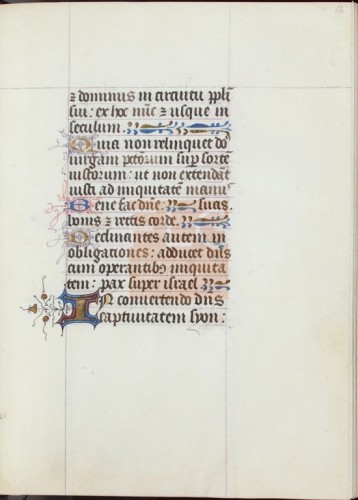 ⁊ dominus in circuitu ppli
sui: ex hoc nũc ⁊ usque in
seculum.
Quia non relinquet dñs
uirgam pctorum sup sortẽ
iustorum: ut non extendãt
iusti ad iniquitatẽ manus
Bene fac dñe: suas.
bonis ⁊ rectis corde.
Declinantes autem in
obligationes: adducet dñs
cum operantibꝫ iniquita
tem: pax super israel.
IN conuertendo dñs
captiuitatem syon: